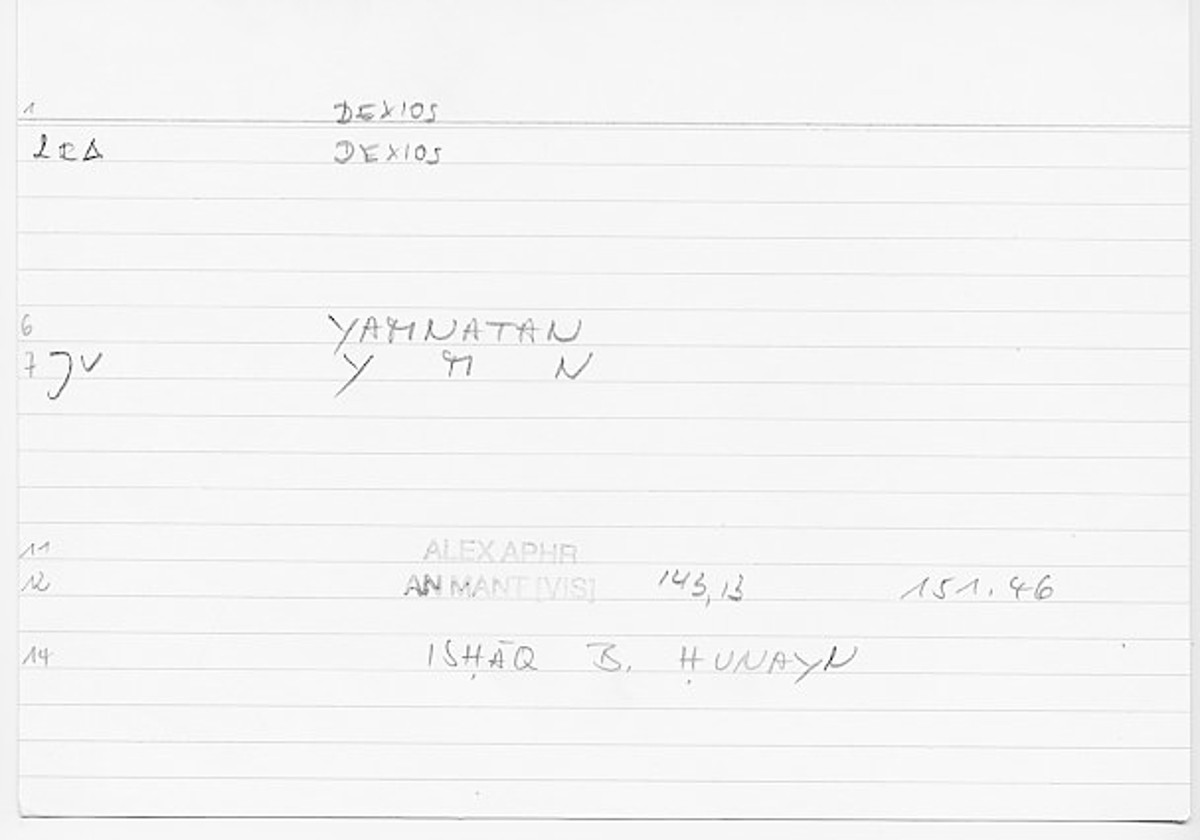 1 DEXIOS
2 RA DEXIOS
6 YAMNATAN
7 JV Y M N
11 ALEX APHR
12 AN MANT [VIS] 143,13 151.46
14 ISḤĀQ B. ḤUNAYN